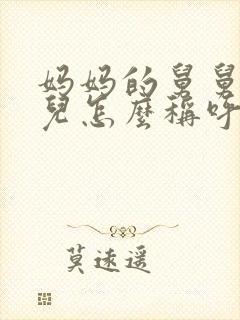 妈妈的舅舅
兒怎麼稱呼
莫遠遥